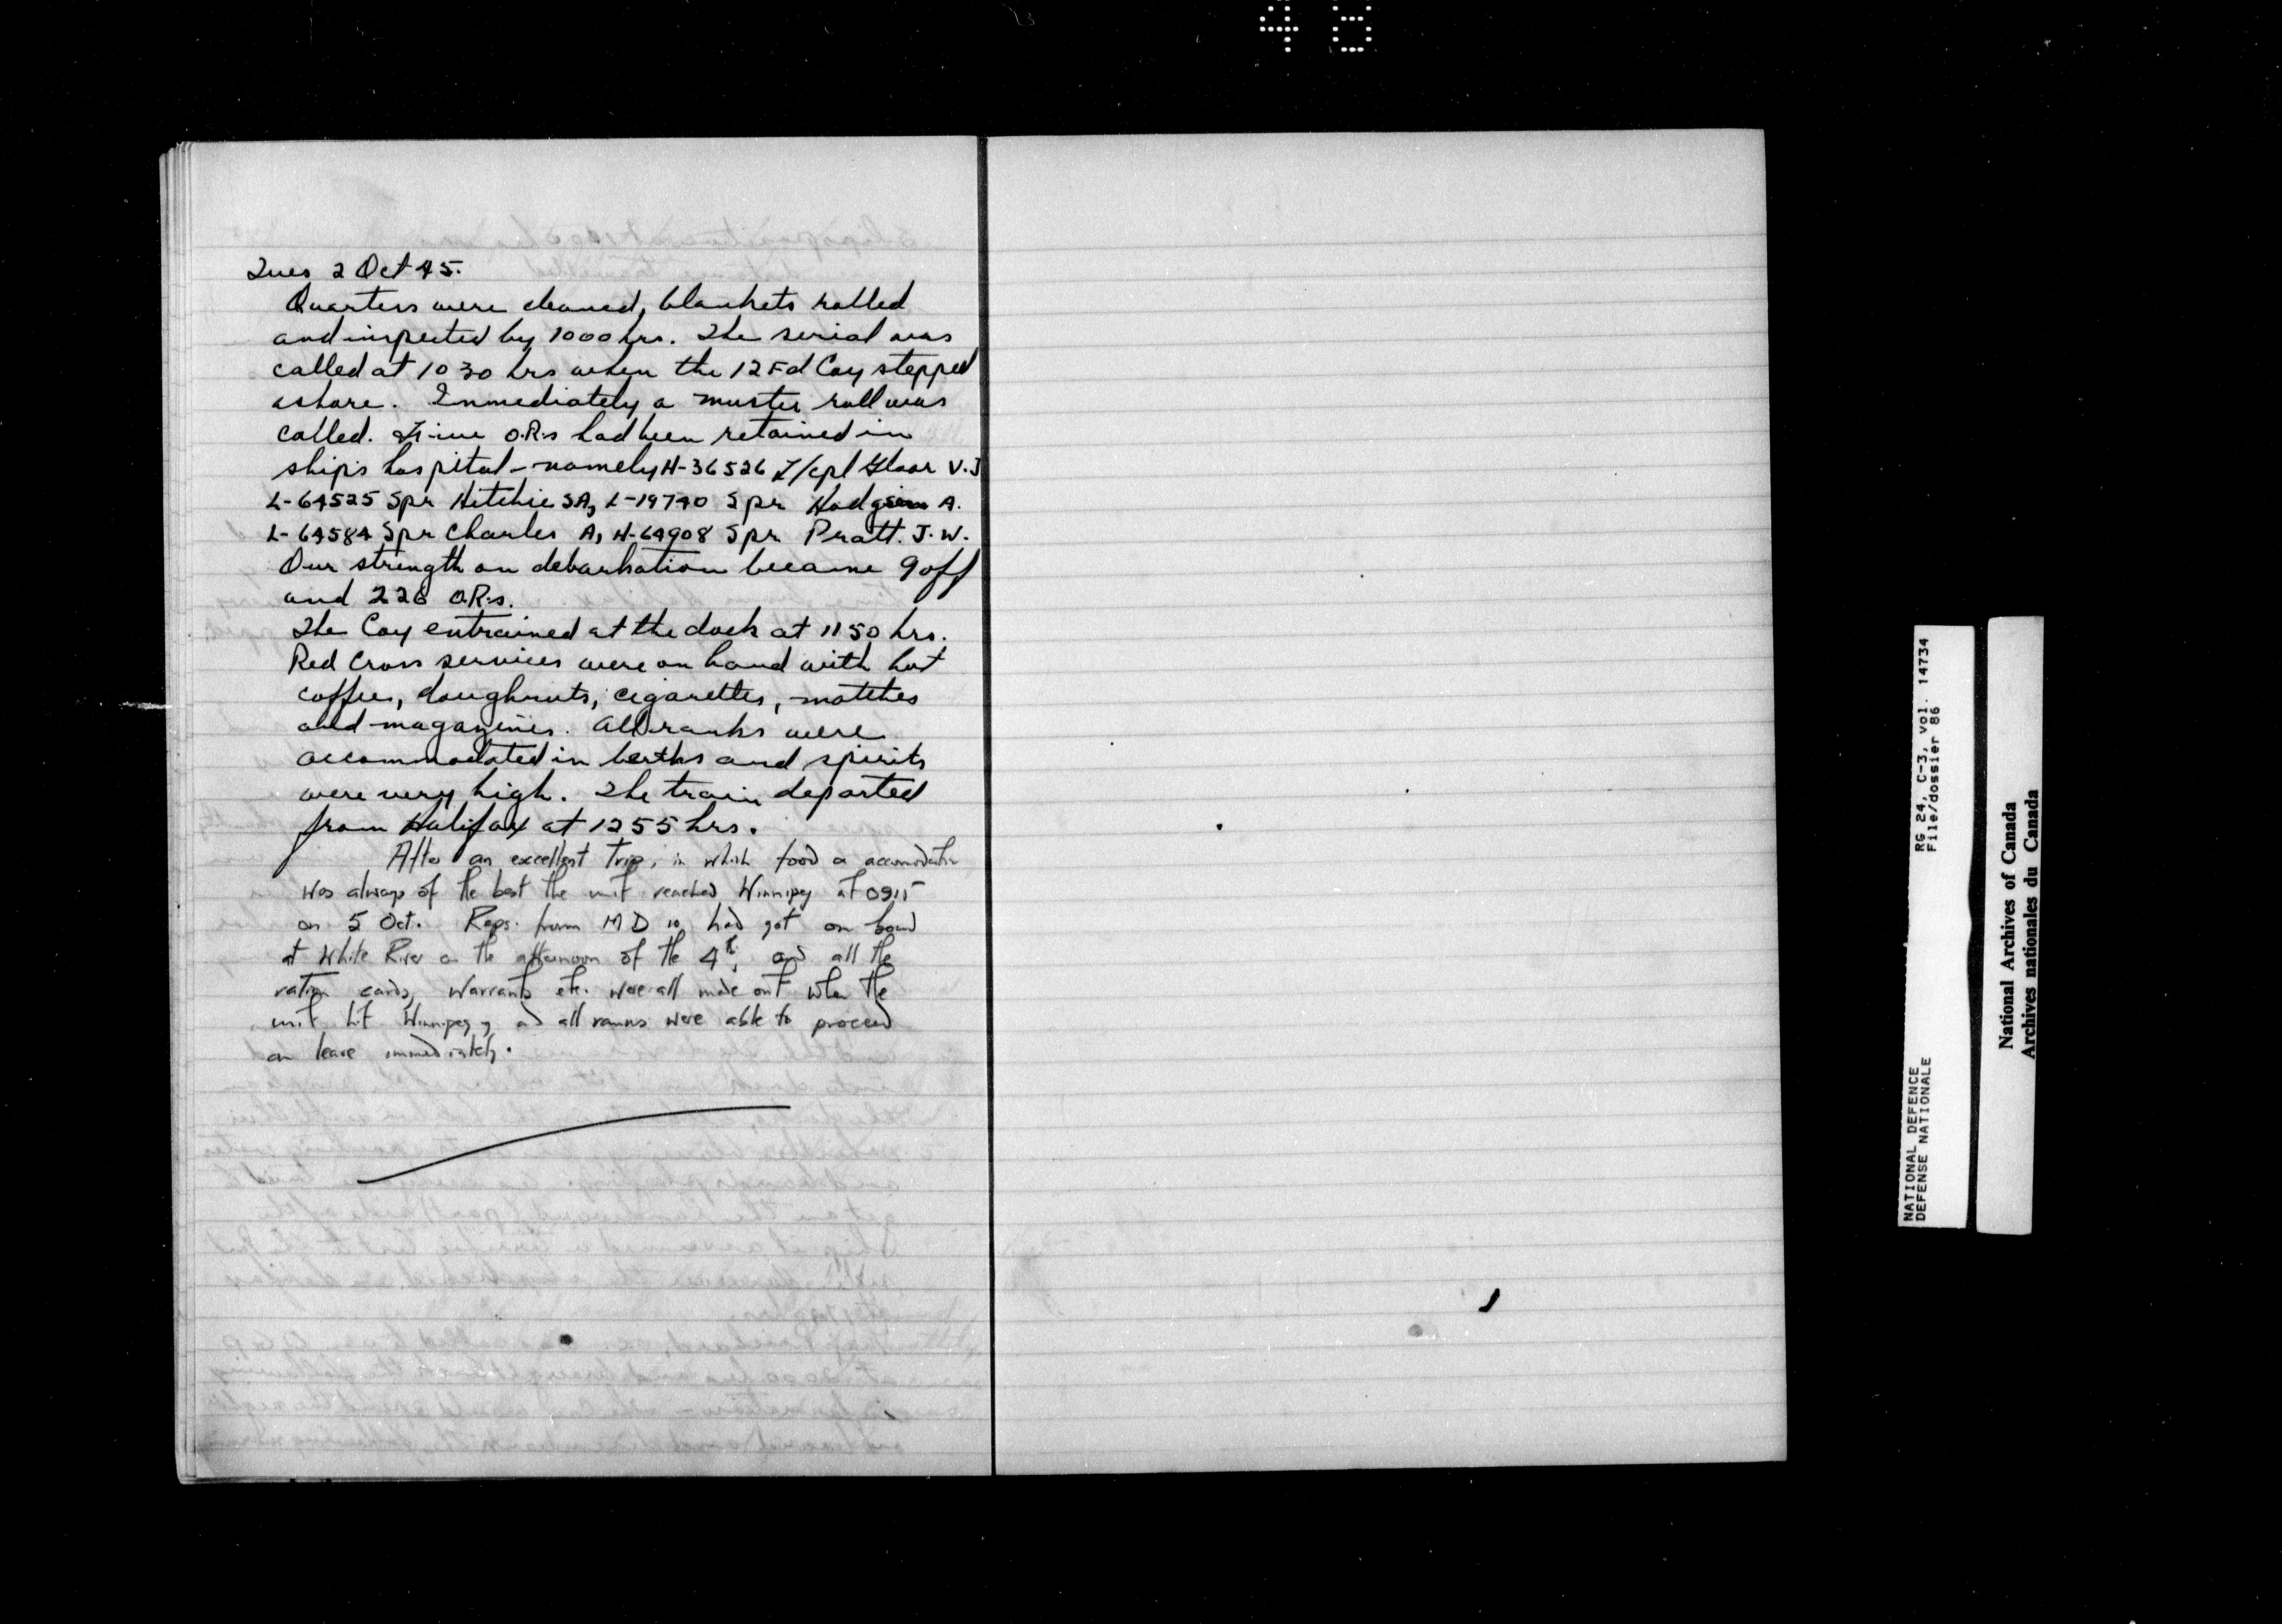 48
Tues 2 Oct 45.
Quarters were cleaned, blankets rolled
and inspected by 1000 hrs. The serial was
called at 1030 hrs when the 12 Fd Coy stepped
ashore. Immediately a muster roll was
called. Five O.R.s had been retained in
ship's hospital - namely H-36526 L/cpl V.J
L-64525 Spr Hitchie SA, L-19740 Spr A.
L-64584 Spr Charles A, H-64908 Spr Pratt. J.W.
Our strength on debarkation became 9 off
and 226 O.R.s.
The Coy entrained at the dock at 1150 hrs.
Red Cross services were on hand with hot
coffee, doughnuts, cigarettes, matches
and magazines. All ranks were
accommodated in berths and spirits
were very high. The train departed
from Halifax at 1255 hrs.
After an excellent trip, in which food & accomodation
was always of the best the unit reached Winnipeg at 0915
on 5 Oct. Reps. from M D 10 had got on board
at White River on the afternoon of the 4th, and all the
ration cards, warrants etc. were all made out when the
unit hit Winnipeg, and all ranks were able to proceed
on leave immediately.
NATIONAL DEFENCE RG 24, C-3, vol. 14734
DEFENSE NATIONALE File/dossier 86
National Archives of Canada
Archives nationales du Canada